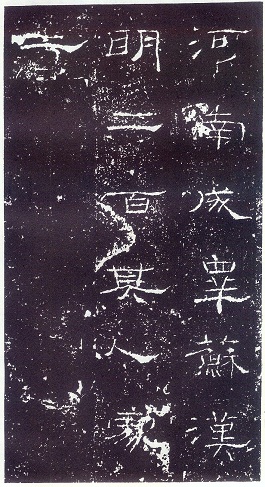 河南成睪蘇漢
明二百其人處
士